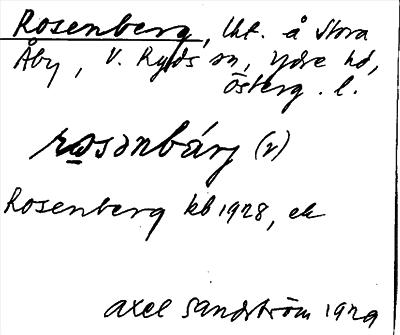 Rosenberg, lht. å Stora
Åby, V. Ryds sn, Ydre hd,
Österg. l.
rosənbárj (2)
Rosenberg kb 1928, ek
Axel Sandström 1929